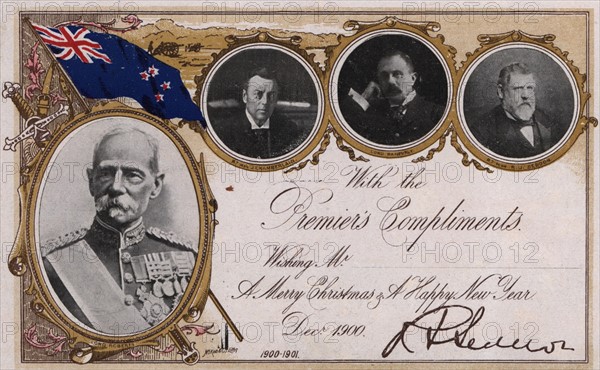 With the
Premier's Compliments.
Wishing Mr
A Merry Christmas & A Happy New Year
Decr 1900.
R Seddon
1900-1901.
PHOTO12